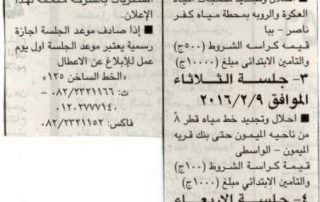 العكرة والروبه بمحطة مياه كفر
ناصر - ببا
قيمة كراسه الشروط (٥٠٠ج)
والتامين الابتدائى مبلغ (١٠٠٠ج)
٣- جلسة الثلاثاء
الموافق ٢٠١٦/٢/٩
• احلال وتجديد خط مياه قطر ٨
من ناحيه الميمون حتى بنك قريه
الميمون - الواسطى
قيمة كراسة الشروط (١٠٠ج)
والتامين الابتدائى مبلغ (١٠٠٠ج)
٤- جلسة الاربعاء
الإعلان.
• إذا صادف موعد الجلسة اجازة
رسمية يعتبر موعد الجلسة اول يوم
عمل للإبلاغ عن الاعطال
• الخط الساخن ١٢٥
ت: ٠٨٢/٢٣٢١١٦٦ -
٠١٢٠٢٧٧٧١٤٠
فاكس: ٠٨٢/٢٣٣١١٥٢